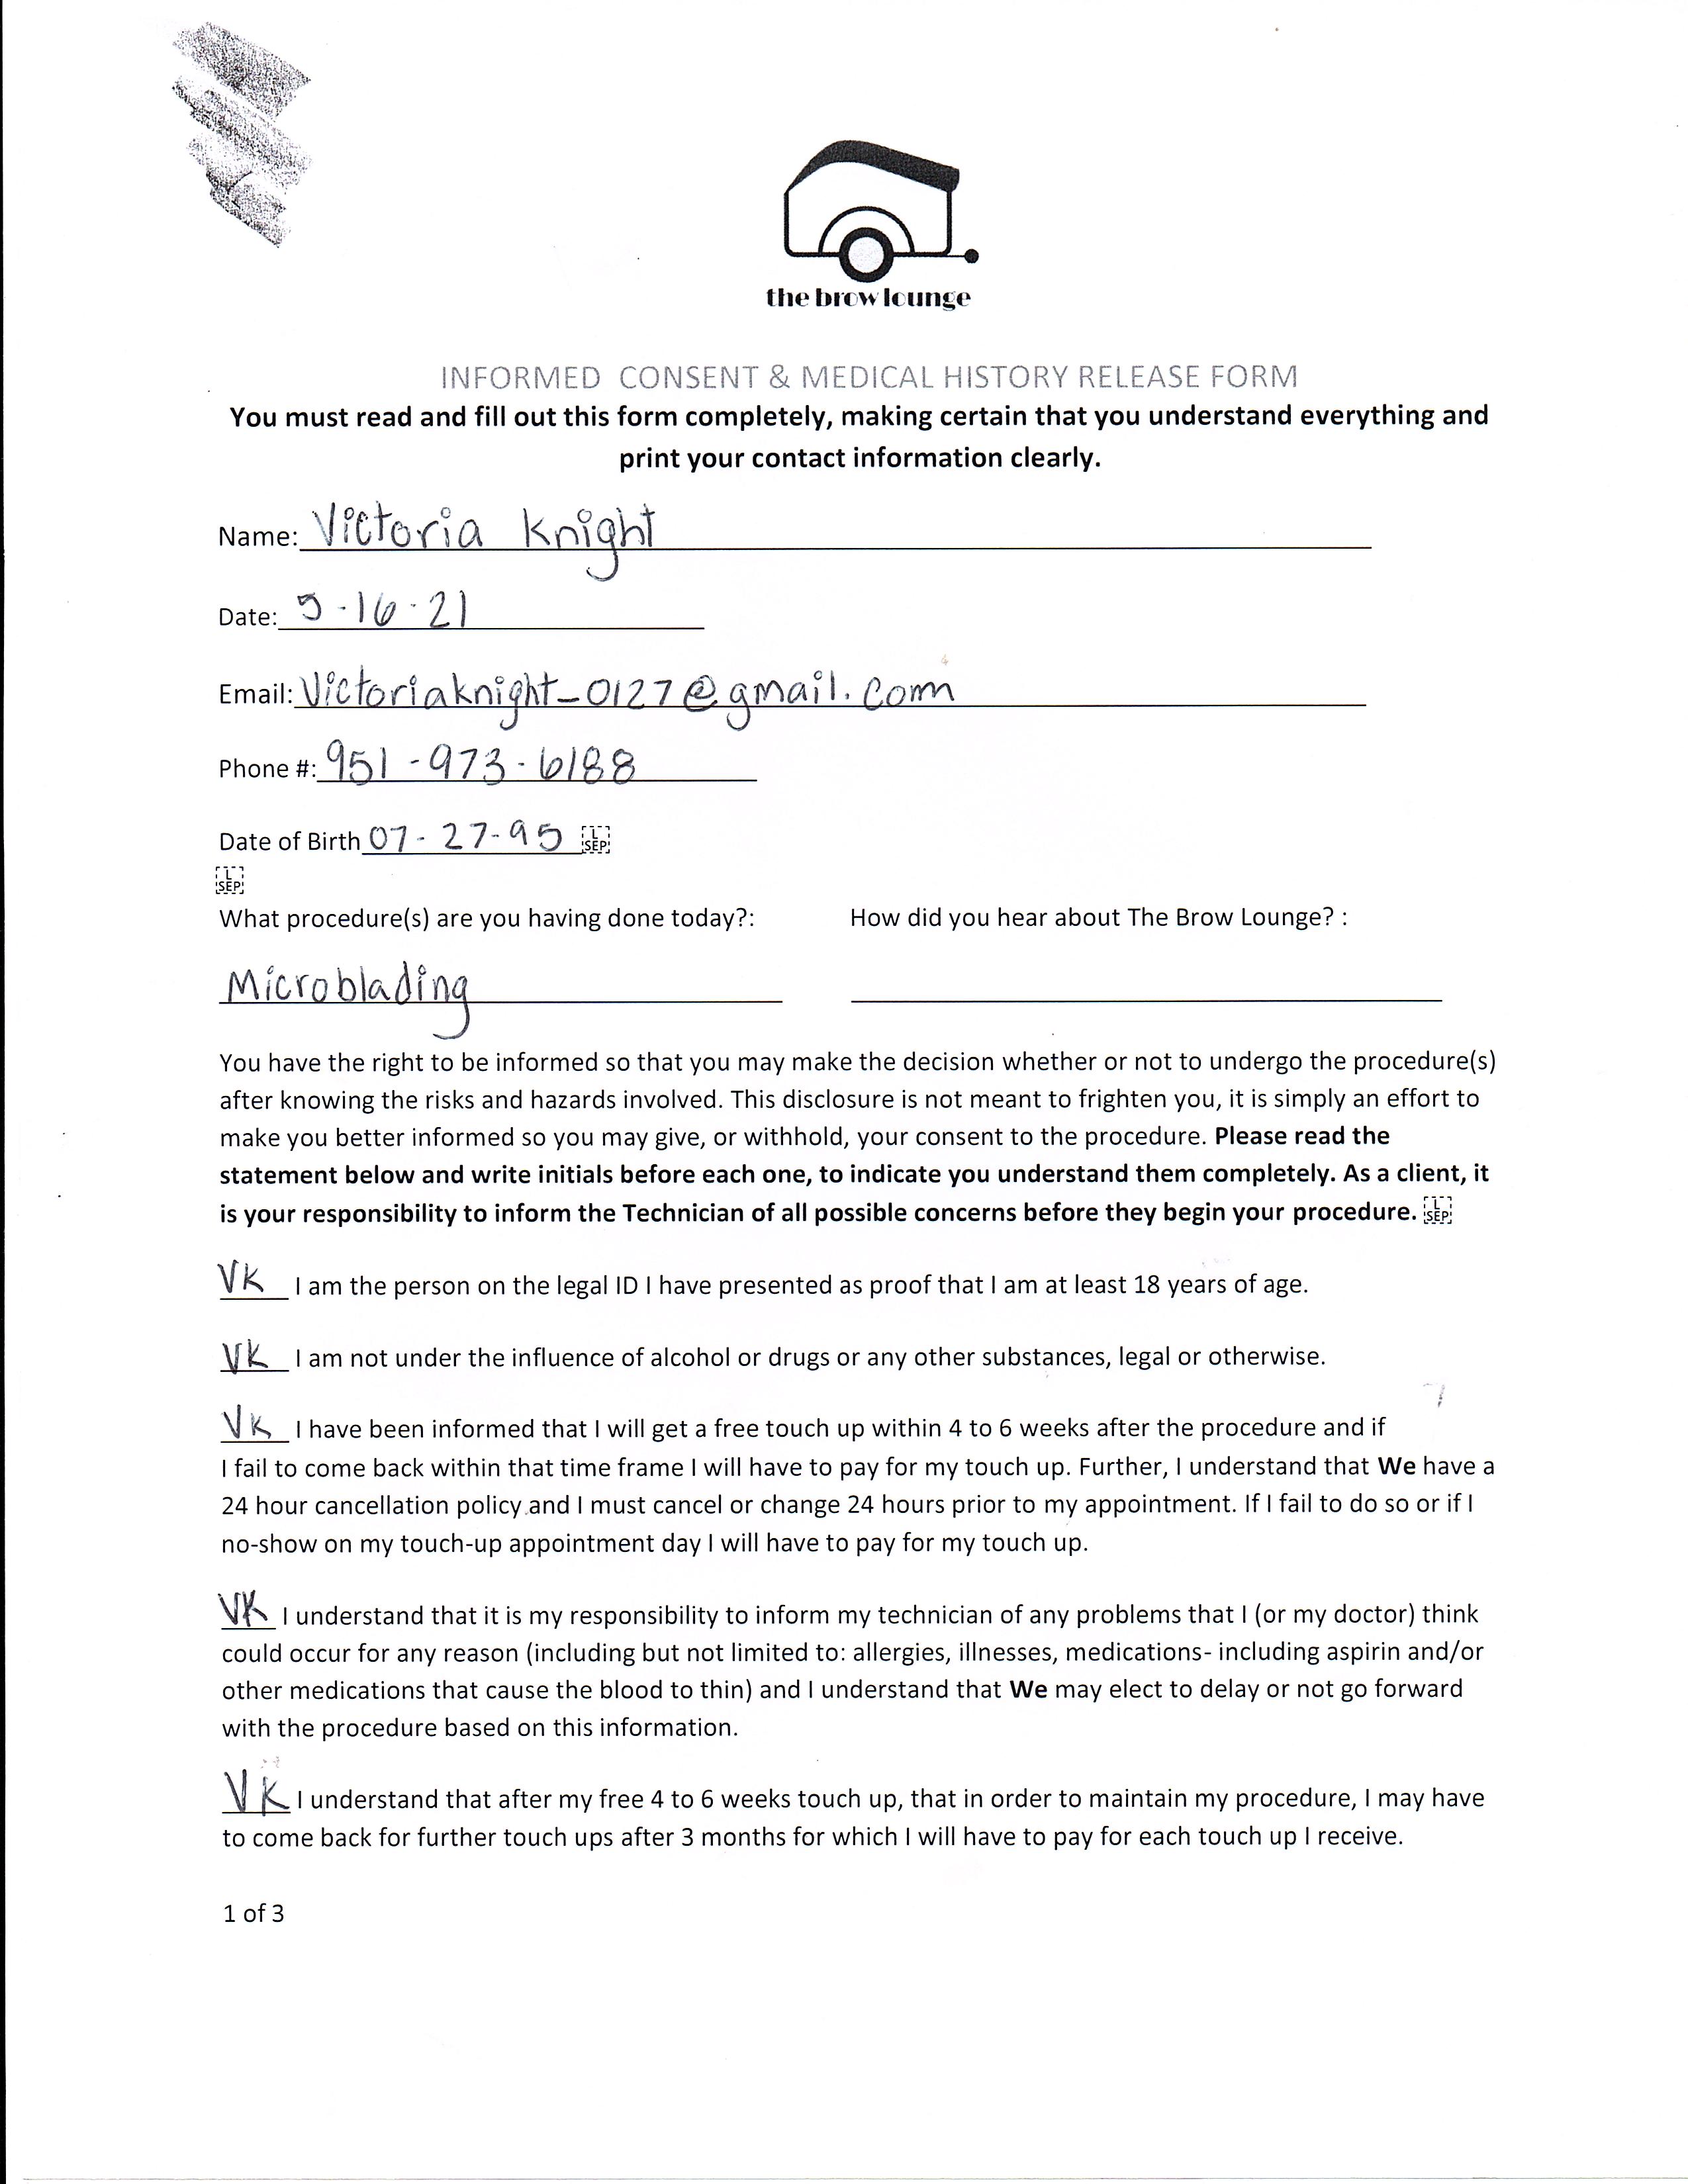 the brow lounge
INFORMED CONSENT & MEDICAL HISTORY RELEASE FORM
You must read and fill out this form completely, making certain that you understand everything and
print your contact information clearly.
Name: Victoria Knight
Date: 5-16-21
Email: Victoriaknight_0127@gmail.com
Phone #: 951-973-6188
Date of Birth 07-27-95 L SEP
L SEP
What procedure(s) are you having done today?: How did you hear about The Brow Lounge? :
Microblading
You have the right to be informed so that you may make the decision whether or not to undergo the procedure(s)
after knowing the risks and hazards involved. This disclosure is not meant to frighten you, it is simply an effort to
make you better informed so you may give, or withhold, your consent to the procedure. Please read the
statement below and write initials before each one, to indicate you understand them completely. As a client, it
is your responsibility to inform the Technician of all possible concerns before they begin your procedure. L SEP
VK I am the person on the legal ID I have presented as proof that I am at least 18 years of age.
VK I am not under the influence of alcohol or drugs or any other substances, legal or otherwise.
VK I have been informed that I will get a free touch up within 4 to 6 weeks after the procedure and if
I fail to come back within that time frame I will have to pay for my touch up. Further, I understand that We have a
24 hour cancellation policy and I must cancel or change 24 hours prior to my appointment. If I fail to do so or if I
no-show on my touch-up appointment day I will have to pay for my touch up.
VK I understand that it is my responsibility to inform my technician of any problems that I (or my doctor) think
could occur for any reason (including but not limited to: allergies, illnesses, medications- including aspirin and/or
other medications that cause the blood to thin) and I understand that We may elect to delay or not go forward
with the procedure based on this information.
VK I understand that after my free 4 to 6 weeks touch up, that in order to maintain my procedure, I may have
to come back for further touch ups after 3 months for which I will have to pay for each touch up I receive.
1 of 3